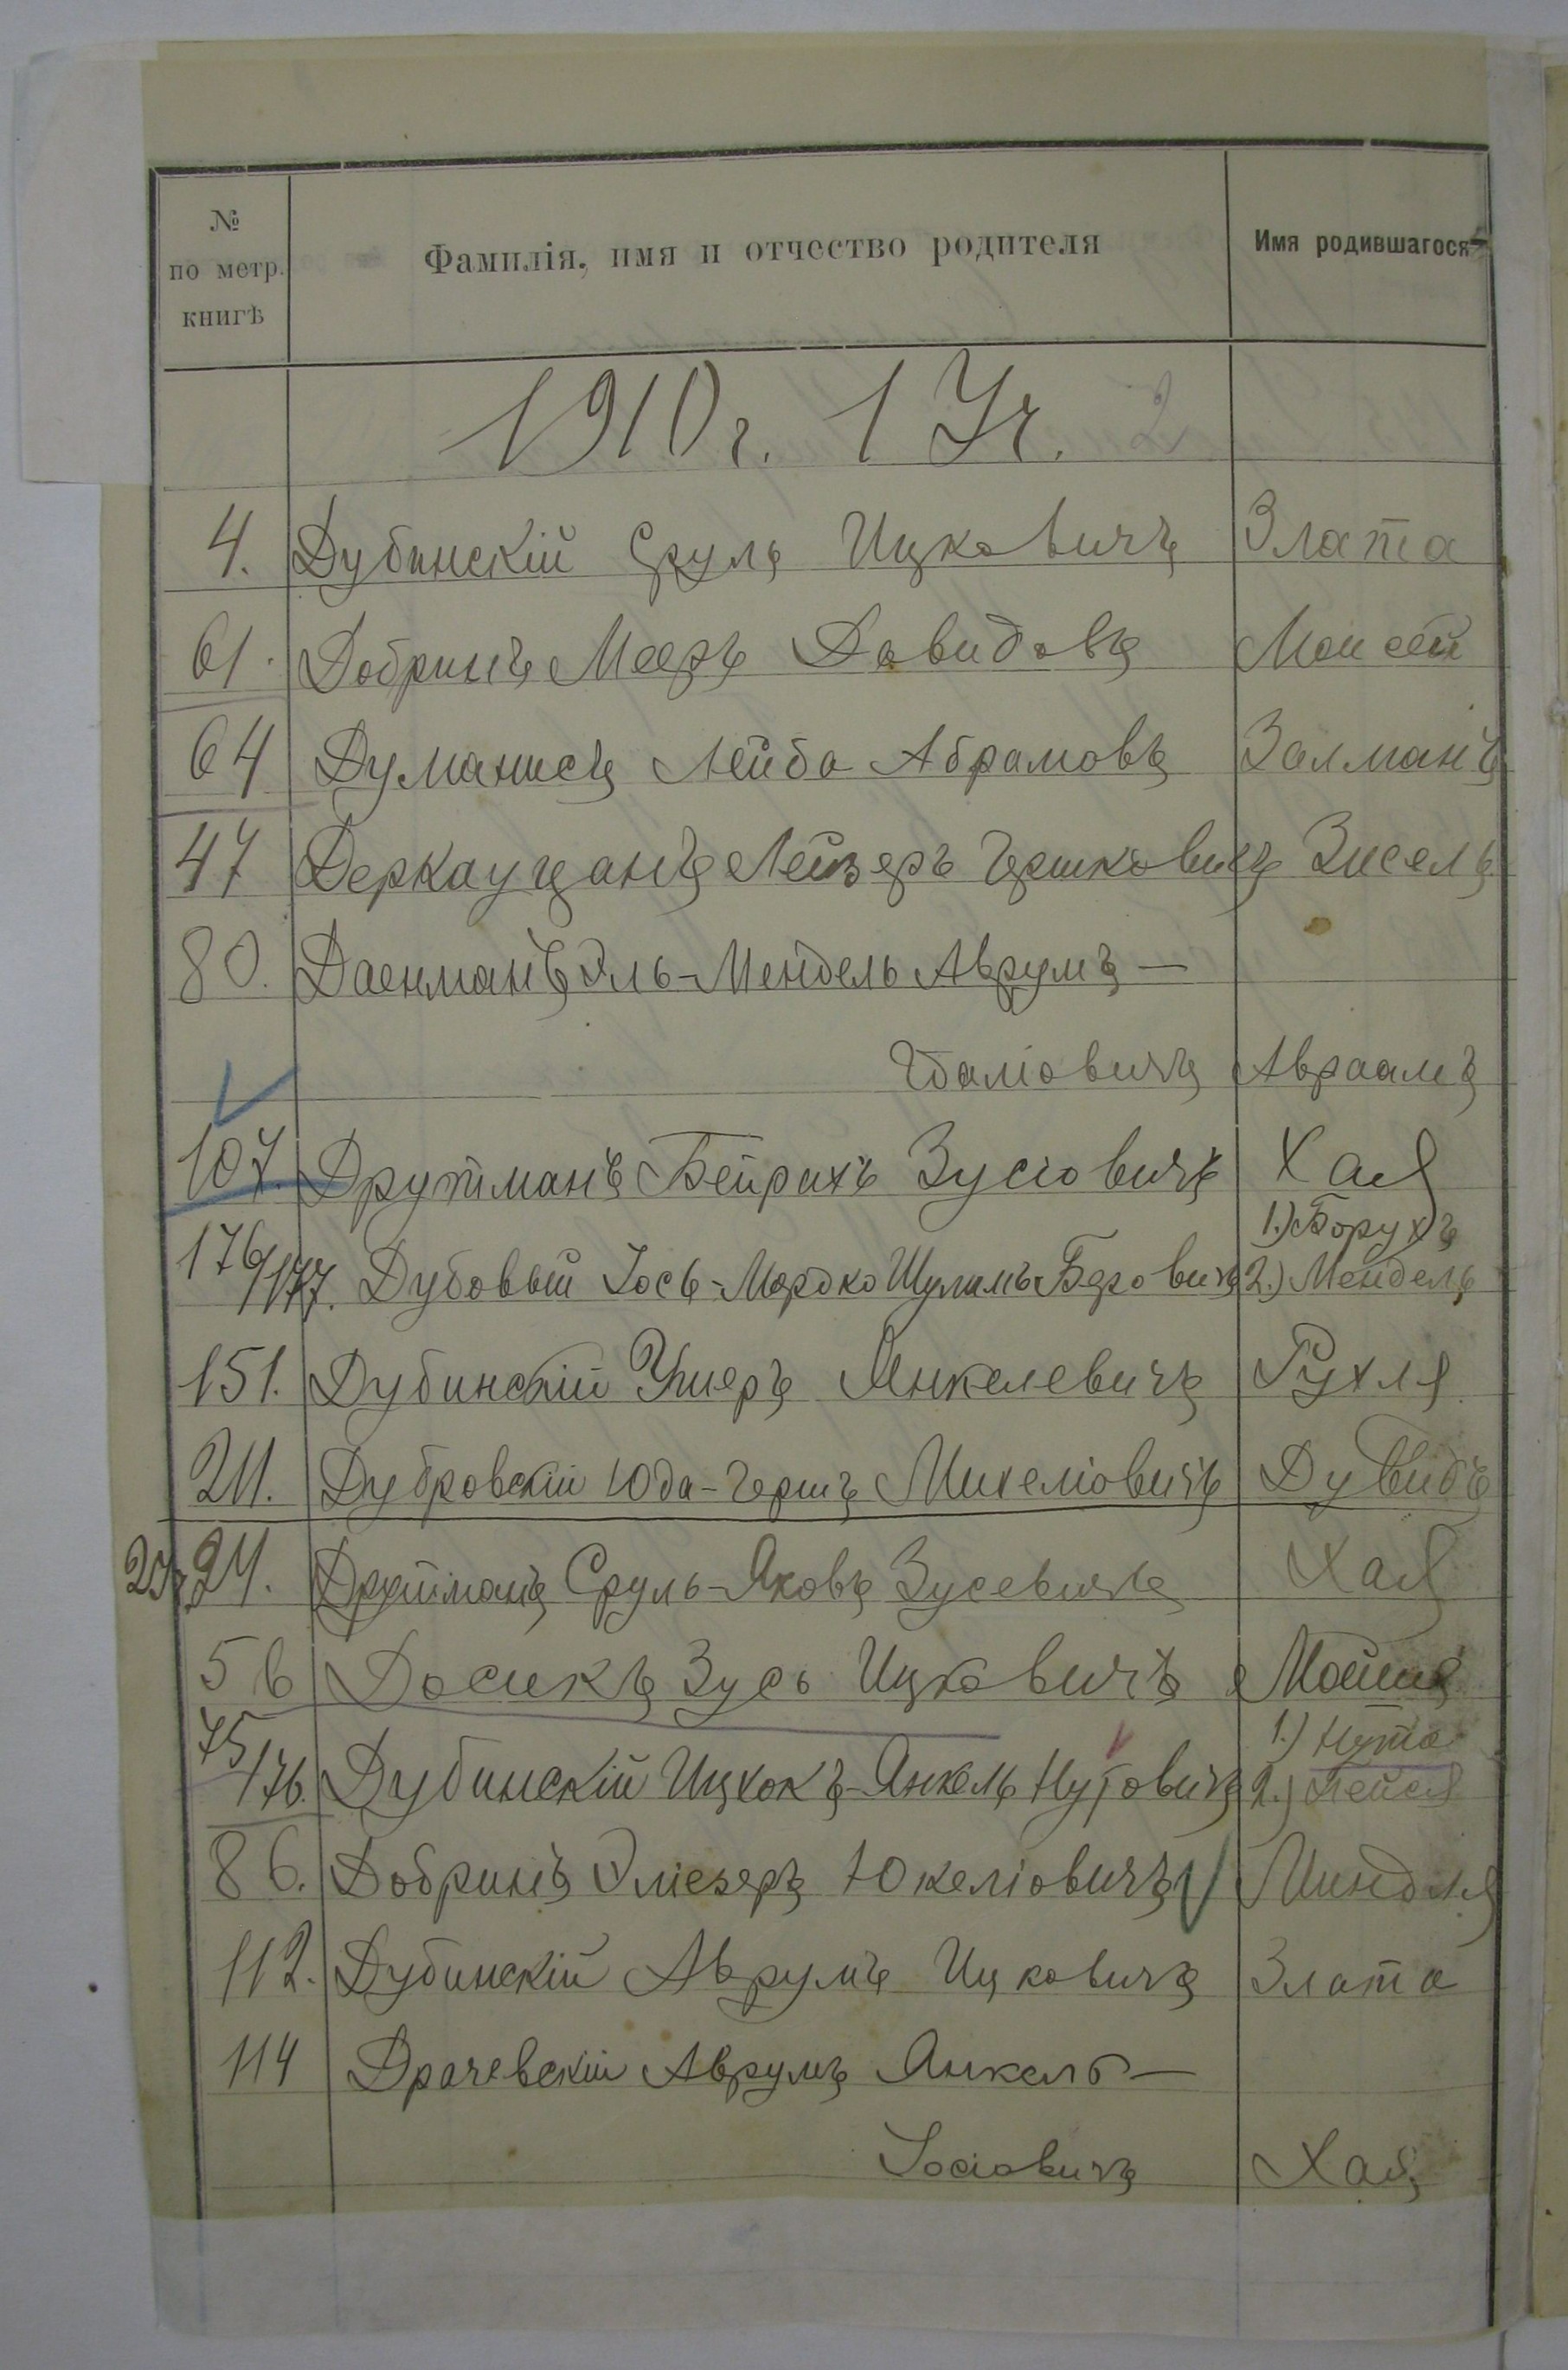 № по метр. книгѣ | Фамилія, имя и отчество родителя | Имя родившагося
1910 г. 1 Уч. 2
4. Дубинскій Сруль Ицковичъ Злата
61. Добринъ Мееръ Давидовъ Моисей
64 Думанисъ Лейба Абрамовъ Залманъ
47 Деркауцанъ Лейзеръ Гершковичъ Зисель
80. Даенманъ Эль-Мендель Аврумъ-
Гдаліовичъ Авраамъ
107. Друтманъ Бейрахъ Зусіовичъ Хая
1.) Борухъ
176/177. Дубовый Іось-Мордко Шулимъ-Беровичъ 2.) Мендель
151. Дубинскій Ушеръ Янкелевичъ Рухля
211. Дубровскій Юда-Гершъ Михеліовичъ Дувидъ
2 Уч. 24. Друтманъ Сруль-Яковъ Зусевичъ Хая
56 Досикъ Зусь Ицковичъ Мойше
1.) Нута
75/76. Дубинскій Ицхокъ-Янкель Нутовичъ 2.) Пейся
86. Добринъ Эліезеръ Юкеліовичъ Миндля
112. Дубинскій Аврумъ Ицковичъ Злата
114 Драчевскій Аврумъ Янкель-
Іосіовичъ Хая